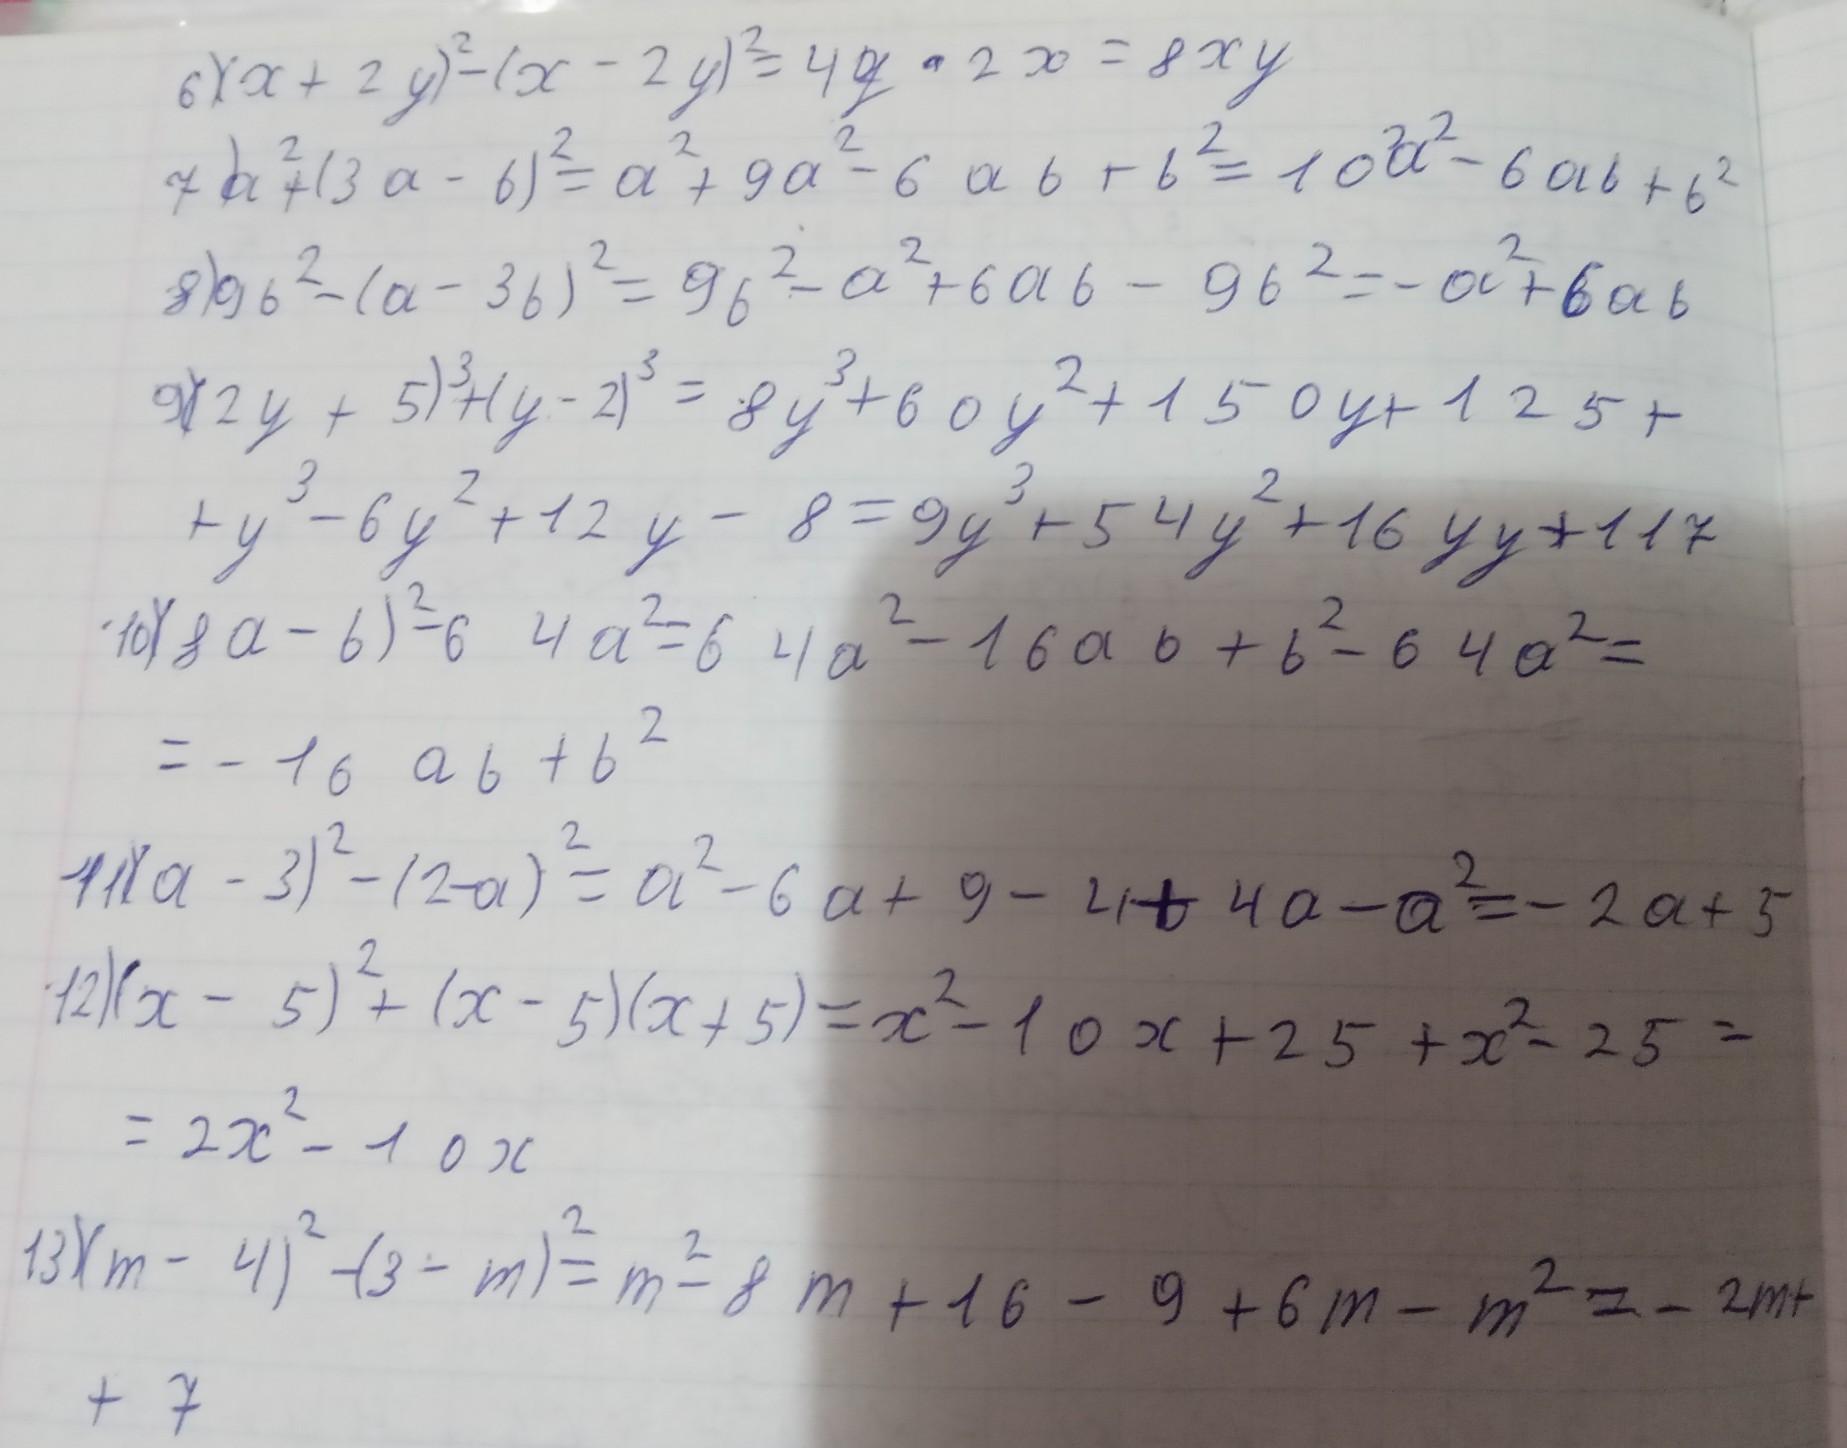 6)(x + 2y)² - (x - 2y)² = 4y · 2x = 8xy
7)a² + (3a - b)² = a² + 9a² - 6ab + b² = 10a² - 6ab + b²
8)9b² - (a - 3b)² = 9b² - a² + 6ab - 9b² = -a² + 6ab
9)(2y + 5)³ + (y - 2)³ = 8y³ + 60y² + 150y + 125 +
+ y³ - 6y² + 12y - 8 = 9y³ + 54y² + 16yy + 117
10)(8a - b)² - 64a² = 64a² - 16ab + b² - 64a² =
= - 16ab + b²
11)(a - 3)² - (2-a)² = a² - 6a + 9 - 4 + 4a - a² = - 2a + 5
12)(x - 5)² + (x - 5)(x + 5) = x² - 10x + 25 + x² - 25 =
= 2x² - 10x
13)(m - 4)² - (3 - m)² = m² - 8m + 16 - 9 + 6m - m² = - 2m +
+ 7